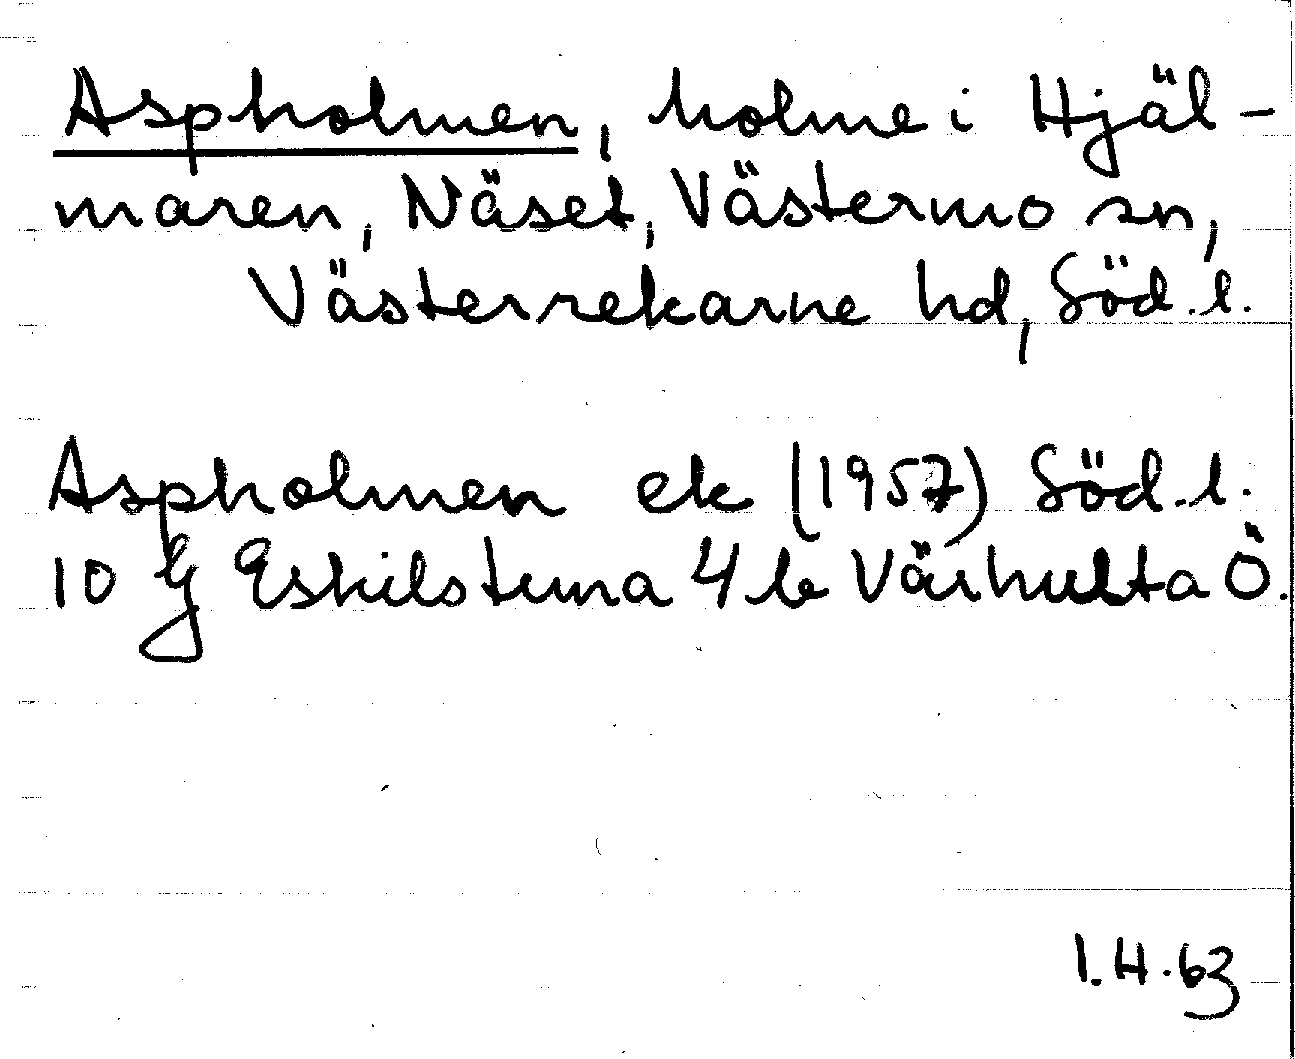 Aspholmen, holme i Hjäl-
maren, Näset, Västermo sn,
Västerrekarne hd, Söd. l.
Aspholmen ek (1957) Söd. l.
10 G Eskilstuna 4 b Värhulta Ö.
1.H.63